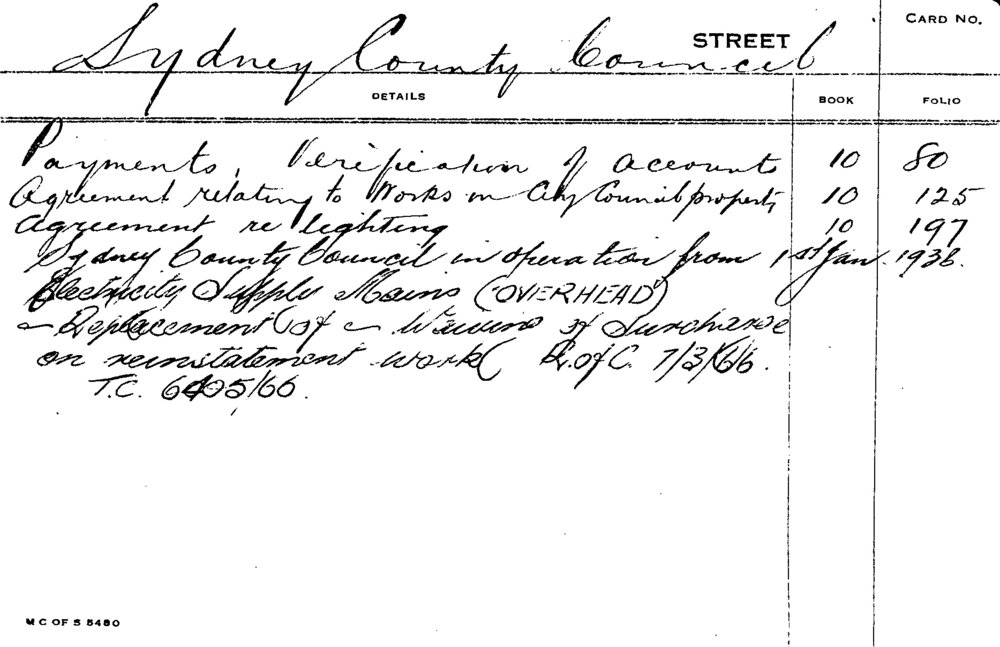 STREET CARD No.
Sydney County Council
DETAILS BOOK FOLIO
Payments, Verification of accounts 10 80
Agreement relating to Works on City Council property 10 125
Agreement re lighting 10 197
Sydney County Council in operation from 1st Jan. 1936.
Electricity Supply Mains (OVERHEAD)
~ Replacement of ~ Waiving of Surcharge
on reinstatement work R. of C. 7/3/66.
T.C. 05/66.
M C OF S 5480